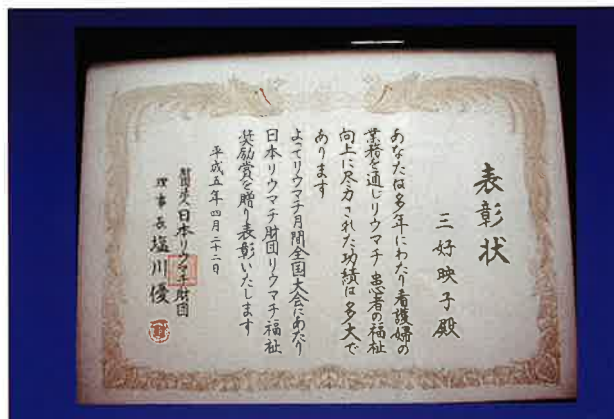 表彰状
三好映子殿
あなたは多年にわたり看護婦の
業務を通じリウマチ患者の福祉
向上に尽力された功績は多大で
あります
よってリウマチ月間全国大会にあたり
日本リウマチ財団リウマチ福祉
奨励賞を贈り表彰いたします
平成五年四月二十二日
財団法人日本リウマチ財団
理事長塩川優